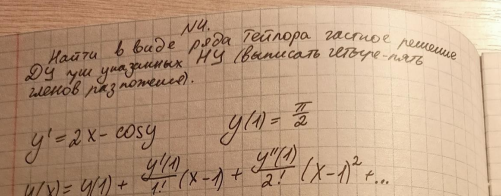 N4.
Найти в виде ряда Тейлора частное решение
ДУ при указанных НУ (выписать четыре-пять
членов разложения).
y' = 2x - cosy y(1) = π/2
y(x) = y(1) + y'(1)/1! (x-1) + y''(1)/2! (x-1)² + ...